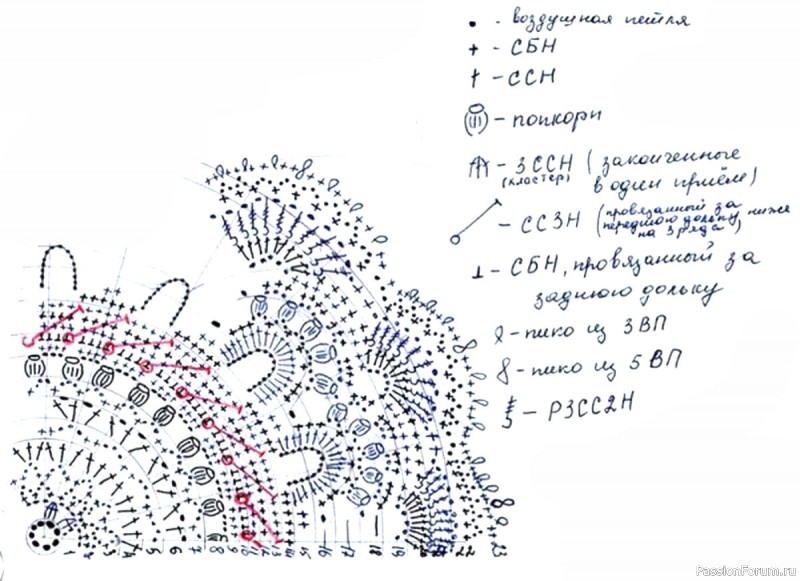 • - воздушная петля
+ - СБН
† - ССН
- попкорн
- 3ССН (законченные
(кластер) в один приём)
- СС3Н (провязанный за
переднюю дольку ниже
на 3 ряда)
⊥ - СБН, провязанный за
заднюю дольку
- пико из 3 ВП
- пико из 5 ВП
- РЗСС2Н
1 3 4 5 6 7 8 9 10 12 13 14 15 16 17 18 19 22 23
PassionForum.ru